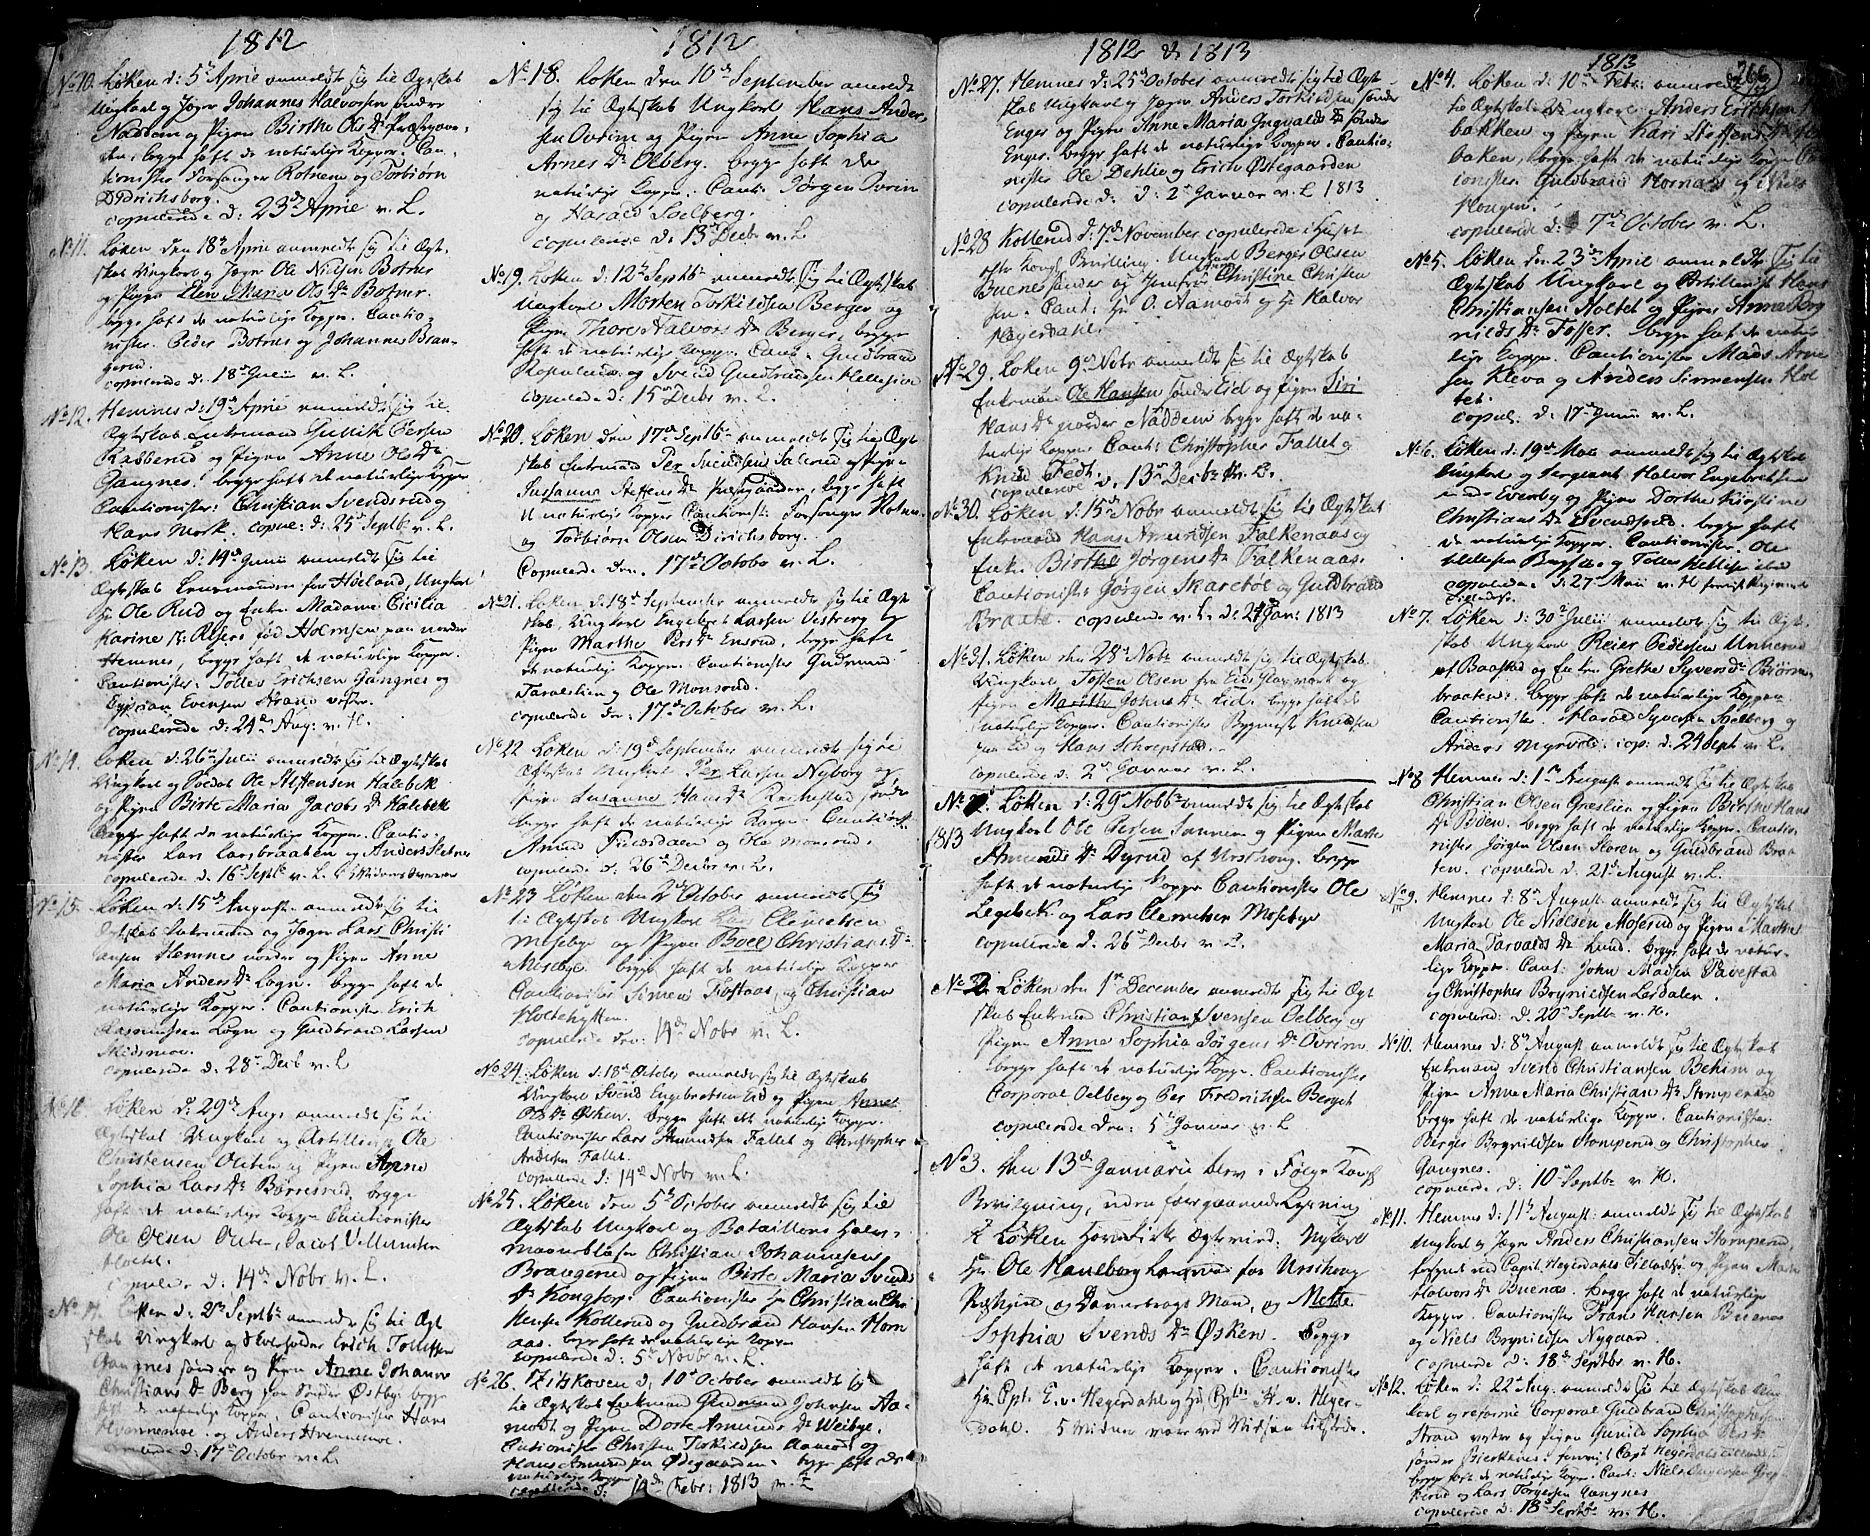 1812
No 10. Løken d: 5te Aprie anmeldt sig til Ægteskab
Ungkarl og Jæger Johannes Halvorsen søndre
Naddum og Pigen Birthe Ols Dr Præstegaar
den, begge haft de naturlige Kopper. Cau-
tionister Forsanger Rotnem og Torbiørn
Didrichsborg.
copulerede d: 23de Aprie v. L.
No 11. Løken den 18de Aprie anmeldt sig til Ægte
skab Ungkarl og Jæger Ole Nielsen Botner
og Pigen Elen Maria Ols Dr Botner.
begge haft de naturlige Kopper. Cautio
nister. Peder Botner og Johannes Bran-
gerud.
copulerede d: 18de Junii v. L.
No 12. Hemnes d: 19de Aprie anmeldt sig til
Ægteskab Enkemand Gullik Persen
Rabberud og Pigen Anne Ols Dr
Gangnes. begge haft de naturlige Kopper
Cautionister: Christian Svendsrud og
Hans Mork. copul: d: 25de Septbr v. L.
No 13. Løken d: 14de Junii anmeldt sig til
Ægteskab Lensmanden for Høeland, Ungkarl
Hr Ole Rud og Enke Madame Cicilia
Karine fød Holmsen paa nordre
Hemnes, begge haft de naturlige Kopper.
Cautionister: Tolles Erichsen Gangnes og
Cyprian Evensen Strand vestre.
copulerede d: 24de Aug: v. H.
No 14. Løken d: 26de Julii anmeldt sig til Ægteskab
Ungkarl og Soldat Ole Steffensen Halebek
og Pigen Birte Maria Jacobs Dr Halebek
begge haft de naturlige Kopper. Cautio-
nister Lars Larsbraaten og Anders Sletner
copulerede d. 16de Septbr v. L.
No 15. Løken d: 15de August anmeldt sig til
Ægteskab Enkemand og Jæger Lars Christi
ansen Hemnes nordre og Pigen Anne
Maria Anders Dr Løgn. begge haft de
naturlige Kopper. Cautionister Erich
Rasmussen Løgn og Guldbrand Larsen
Skidsmoe.
copulerede d. 28de Decb v. L
No 16. Løken d: 29de Aug: anmeldt sig til
Ægteskab Ungkarl og Artillerist Ole
Christensen Oliten og Pigen Anne
Sophia Lars Dr Børresrud, begge
haft de naturlige Kopper Cautionister
Ole Olsen Oliten, Jacob Villumsen
Holtet.
copulerede d: 14de Nobr v. L.
No 17. Løken d: 2den Septbr anmeldt sig til Ægte
skab Ungkarl og Erich Tollefsen
Gangnes søndre og Pigen Anne Johanne
Christians Dr Berg fra søndre Østby begge
haft de naturlige Kopper, Cautionister Hans
Hvannemoe. og Anders Hvannemoe.
copulerede d: 17de October v. L.
1812
No 18. Løken den 10de September anmeldt
sig til Ægteskab Ungkarl Hans Ander-
sen Ovrim og Pigen Anne Sophia
Arnes Dr Olberg. begge haft de
naturlige Kopper. Cauti: Jørgen Ovrim
og Harald Soelberg.
copulerede d: 13de Decbr v. L.
No 19. Løken d: 12te Septbr anmeldt sig til Ægteskab
Ungkarl Morten Torkildsen Berger og
Pigen Thore Halvors Dr Berger, begge
haft de naturlige Kopper. Caut: Guldbrand
Kopperud og Svend Guldbrandsen Hellesiøe
copulerede d: 15de Decbr v. L.
No 20. Løken den 17de Septbr anmeldt sig til Ægte
skab Enkemand Per Svendsen Salerud og Pigen
Susanna Steffens Dr Præstegaarden, begge haft
de naturlige Kopper Cautionist: Forsanger Rotnem
og Torbiørn Olsen Didrichsborg.
Copulerede den 17de Octobr v. L.
No 21. Løken d: 18de September anmeldt sig til Ægte
skab, Ungkarl Engebret Larsen Vestreng og
Pigen Marthe Pers Dr Ensrud, begge haft
de naturlige Kopper. Cautionister Gudmund
Taraldlien og Ole Monsrud.
copulerede den 17de October v. L.
No 22 Løken d: 19de September anmeldt sig til
Ægteskab Ungkarl Per Larsen Nyborg og
Pigen Susanne Hans Dr Rachestad søndre
begge haft de naturlige Kopper. Cautionist:
Amund Finsdalen og Ole Monsrud.
copulerede d: 26de Decbr v. L.
No 23 Løken den 2den October anmeldt sig
til Ægteskab Ungkarl Per Clemetsen
Mosebye og Pigen Boel Christians Dr
Mosebye. begge haft de naturlige Kopper
Cautionister Simen Tostaas, og Christian
Holtehytten.
copulerede den: 14de Nobr v. L.
No 24. Løken d: 18de October anmeldt sig til Ægteskab
Ungkarl Svend Engebretsen Eid og Pigen Anne
Ols Dr Øsken. begge haft de naturlige Kopper.
Cautionister Lars Amundsen Fallet og Christopher
Andersen Fallet.
copulerede d: 14de Nobr v. L.
No 25. Løken den 5te October anmeldt sig til
Ægteskab Ungkarl og Bataillons Halv-
maaneblæser Christian Johannesen
Brangerud og Pigen Birte Maria Svends
Dr Kongtorp. Cautionister Hr Christian Chri
stensen Kollerud og Guldbrand Hansen Horn
aas. begge haft de naturlige Kopper
copulerede d: 5te Novbr v. L.
No 26. d: 10de October anmeldt sig
til Ægteskab Enkemand Gudmund Johnsen Aa-
modt og Pigen Dorte Amunds Dr Weibye.
Cautionister Christen Torkildsen Aamodt og
Hans Amundsen Ødegaarden. begge haft de
naturlige Kopper
copulerede d: 12de Febr: 1813 v. L
1812 & 1813
No 27. Hemnes d: 25de October anmeldt sig til Ægte
skab Ungkarl og Jæger Anders Torkildsen søndre
Enger og Pigen Anne Maria Ingvalds Dr søndre
Enger. begge haft de naturlige Kopper. Cautio-
nister Ole Dehlie og Erich Østegaarden
copulerede d: 2den Januar v. L 1813
No 28 Kollerud d: 7de November copulerede i Huset
efter Kongl Bevilling. Ungkarl Berger Olsen
Buenes søndre og Jomfrue Anne Christine Christen
sen. Caut: Hr O. Aamodt og Hr Halvor
Hegerdahl.
No 29. Løken 9de Nobr anmeldt sig til Ægteskab
Enkemand Ole Hansen søndre Eid og Pigen Siri
Hans Dr nordre Naddum begge haft de na-
turlige Kopper Caut: Christopher Fallet og
Knud Fedt.
copulerede d. 13de Decbr v. L.
No 30. Løken d: 15de Nobr anmeldt sig til Ægteskab
Enkemand Hans Amundsen Falkenaas og
Enke Birthe Jørgens Dr Falkenaas.
Cautionister Jørgen Skarebøl og Guldbrand
Braate. copulerede v. L. d: 24de Jan: 1813
No 31. Løken den 28de Nobr anmeldt sig til Ægteskab
Ungkarl Tosten Olsen fra Eids Plasmark og
Pigen Marthe Johns Dr Eid. begge haft de
naturlige Kopper. Cautionister Bygmester Knudsen
paa Eid og Hans Schrepstad.
copulerede d: 2den Januar v. L.
No 1. Løken d: 29de Nobbr anmeldt sig til Ægteskab
1813 Ungkarl Ole Persen Sannem og Pigen Marte
Amunds Dr Dyrud af Urskoug. begge
haft de naturlige Kopper Cautionister Ole
Legebek og Lars Clemetsen Mosebye
copulerede d. 26de Decbr v. L.
No 2. Løken den 1ste December anmeldt sig til Ægte
skab Enkemand Christian Svensen Oelberg og
Pigen Anne Sophia Jørgens Dr Ovrim
begge haft de naturlige Kopper. Cautionister
Corporal Oelberg og Per Fredrichsen Berget
copulerede den: 5te Januar v. L.
No 3. Den 13de Januarii blev i Følge Kongl
Bevilgning, uden foregaaende Lysning
i Løken Hovedkirke Ægteviet. Ungkarl
Hr Ole Haneborg for Urskoug
Præstegield, og Dannebrogs Mand, og Mette
Sophia Svends Dr Øsken. begge
haft de naturlige Kopper. Cautionister
Hr Cpt. E. v. Hegerdahl og Hr H. v. Heger-
dahl.
1813
266
No 4. Løken d: 10de Febr: anmeldt sig
til Ægteskab Ungkarl Anders Erichsen
bakken og Pigen Kari Steffens Dr
baken, begge haft de naturlige Kopper Cau
tionister. Guldbrand Hornaas og Niels
Hougen.
copulerede d: 7de October v. L.
No 5. Løken den 23de Aprie anmeldt sig til
Ægteskab Ungkarl og Artillerist Hans
Christiansen Holtet og Pigen Anne Børg
nilds Dr Fosser. begge haft de natur
lige Kopper. Cautionister Mads Arne
sen Kleva og Anders Simensen Hol
tet.
copul: d: 17de Junii v. L.
No 6. Løken d. 19de Maii anmeldt sig til Ægteskab
Ungkarl og Sergeant Halvor Engebretsen
Evenby og Pigen Dorthe Kirstine
Christians Dr Svendsrud. begge haft
de naturlige Kopper. Cautionister. Ole
Bergsøe og Tolles Hellesiøe
copulerede d: 27de Maii v. H
No 7. Løken d: 30te Julii anmeldt sig til Ægte-
skab Ungkarl Reier Pedersen Unnerud
af Baastad og Enken Grethe Syvers Dr Biørn-
braaten: begge haft de naturlige Kopper.
Cautionister. Harald Syversen Soelberg og
Anders Myrvold. cop: d. 24 Sept v. L.
No 8 Hemnes d: 1ste August anmeldt sig til Ægteskab
Christian Olsen Græslien og Pigen Birthe Hans
Dr Byden. begge haft de naturlige Kopper. Cautio-
nister Jørgen Olsen Sloren og Guldbrand Braa
ten. copulerede d: 21de August v. L.
No 9. Hemnes d: 8de August: anmeldt sig til Ægteskab
Ungkarl Ole Nielsen Moserud og Pigen Marthe
Maria Tarvalds Dr Lund. begge haft de natur-
lige Kopper. Caut: John Madsen Tævestad
og Christopher Brynildsen Lerdalen.
copulerede d. 20de Septbr v. H.
No 10. Hemnes d: 8de August anmeldt sig til Ægteskab
Enkemand Svend Christiansen Behim og
Pigen Anne Maria Christians Dr Stomperud
begge haft de naturlige Kopper. Cautionister.
Berger Brynildsen Stomperud og Christopher
Gangnes.
copulerede d: 10de Septbr v H.
No 11. Hemnes d: 11te August: anmeldt sig til Ægteskab
Ungkarl og Jæger Anders Christiansen Stomperud,
ved Capit. Hegerdahls og Pigen Mari
Halvors Dr Buenæs. begge haft de naturlige
Kopper. Cautionister Frans Hansen Buenæs
og Niels Brynildsen Nygaard.
copulerede d: 18de Septbr v. H.
No 12. Løken d: 22de Aug: anmeldt sig til Ægteskab Ung
karl og reformeret Corporal Guldbrand Christophersen
Strand vestre og Pigen Gunild Sophia Pers Dr
søndre Bierkenes i Capt Hegerdahls
begge haft de naturlige Kopper. Caut: Niels
kerud og Lars Torgersen Gangnes
copulerede d: 18de Septbr v. H.